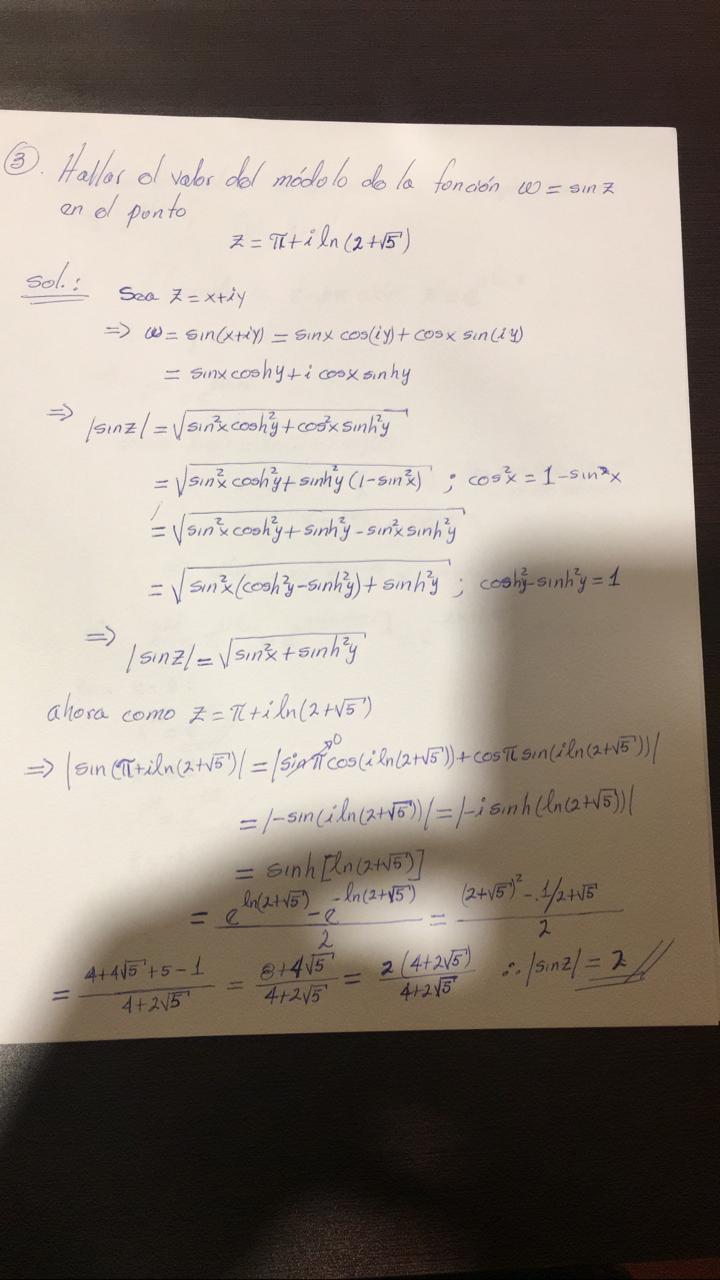 ③. Hallar el valor del módulo de la función w = sin z
en el punto
z = π + i ln(2+√5)
Sol.: Sea z = x+iy
⇒ w = sin(x+iy) = sinx cos(iy) + cosx sin(iy)
= sinx coshy + i cosx sinhy
⇒ |sinz| = √(sin²x cosh²y + cos²x sinh²y)
= √(sin²x cosh²y + sinh²y (1-sin²x)) ; cos²x = 1-sin²x
= √(sin²x cosh²y + sinh²y - sin²x sinh²y)
= √(sin²x(cosh²y-sinh²y) + sinh²y) ; cosh²y-sinh²y = 1
⇒ |sinz| = √(sin²x + sinh²y)
ahora como z = π + i ln(2+√5)
⇒ |sin(π+iln(2+√5)| = |sin π cos(i ln(2+√5)) + cosπ sin(i ln(2+√5))|
= |-sin(i ln(2+√5))| = |-i sinh(ln(2+√5))|
= sinh[ln(2+√5)]
= (e^ln(2+√5) - e^-ln(2+√5))/2 = ((2+√5)² - 1/2+√5)/2
= (4+4√5+5-1)/(4+2√5) = (8+4√5)/(4+2√5) = 2(4+2√5)/(4+2√5) ∴ |sinz| = 2 //